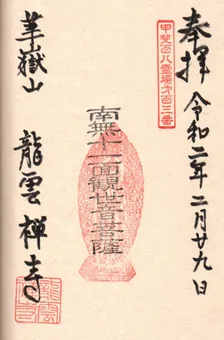 奉拝
令和二年二月廿九日
甲斐百八霊場第百三番
南無十一面観世音菩薩
羊嶽山
龍雲禅寺